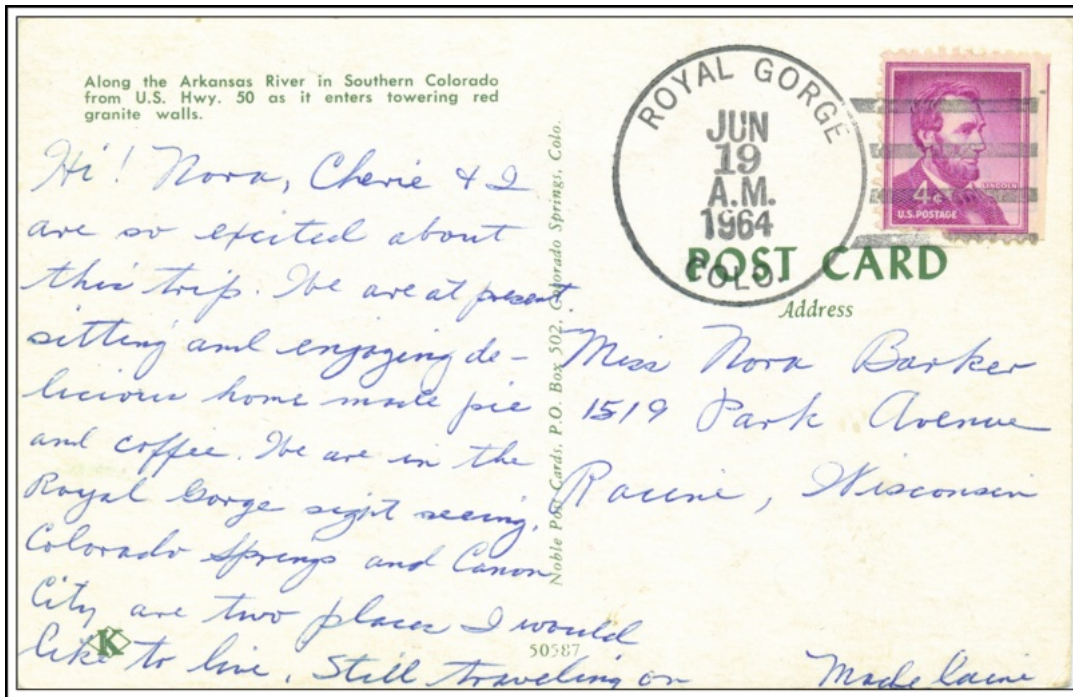 Along the Arkansas River in Southern Colorado
from U.S. Hwy. 50 as it enters towering red
granite walls.
Hi! Nora, Cherie & I
are so excited about
this trip. We are at present
sitting and engoging de-
licious home made pie
and coffee. We are in the
Royal Gorge sight seeing.
Colorado Springs and Canon
City are two places I would
like to live. Still traveling on
Madelaine
K
50587
Noble Post Cards, P.O. Box 502, Colorado Springs, Colo.
ROYAL GORGE
JUN
19
A.M.
1964
COLO.
LINCOLN
4¢
U.S. POSTAGE
POST CARD
Address
Miss Nora Barker
1519 Park Avenue
Racine, Wisconsin